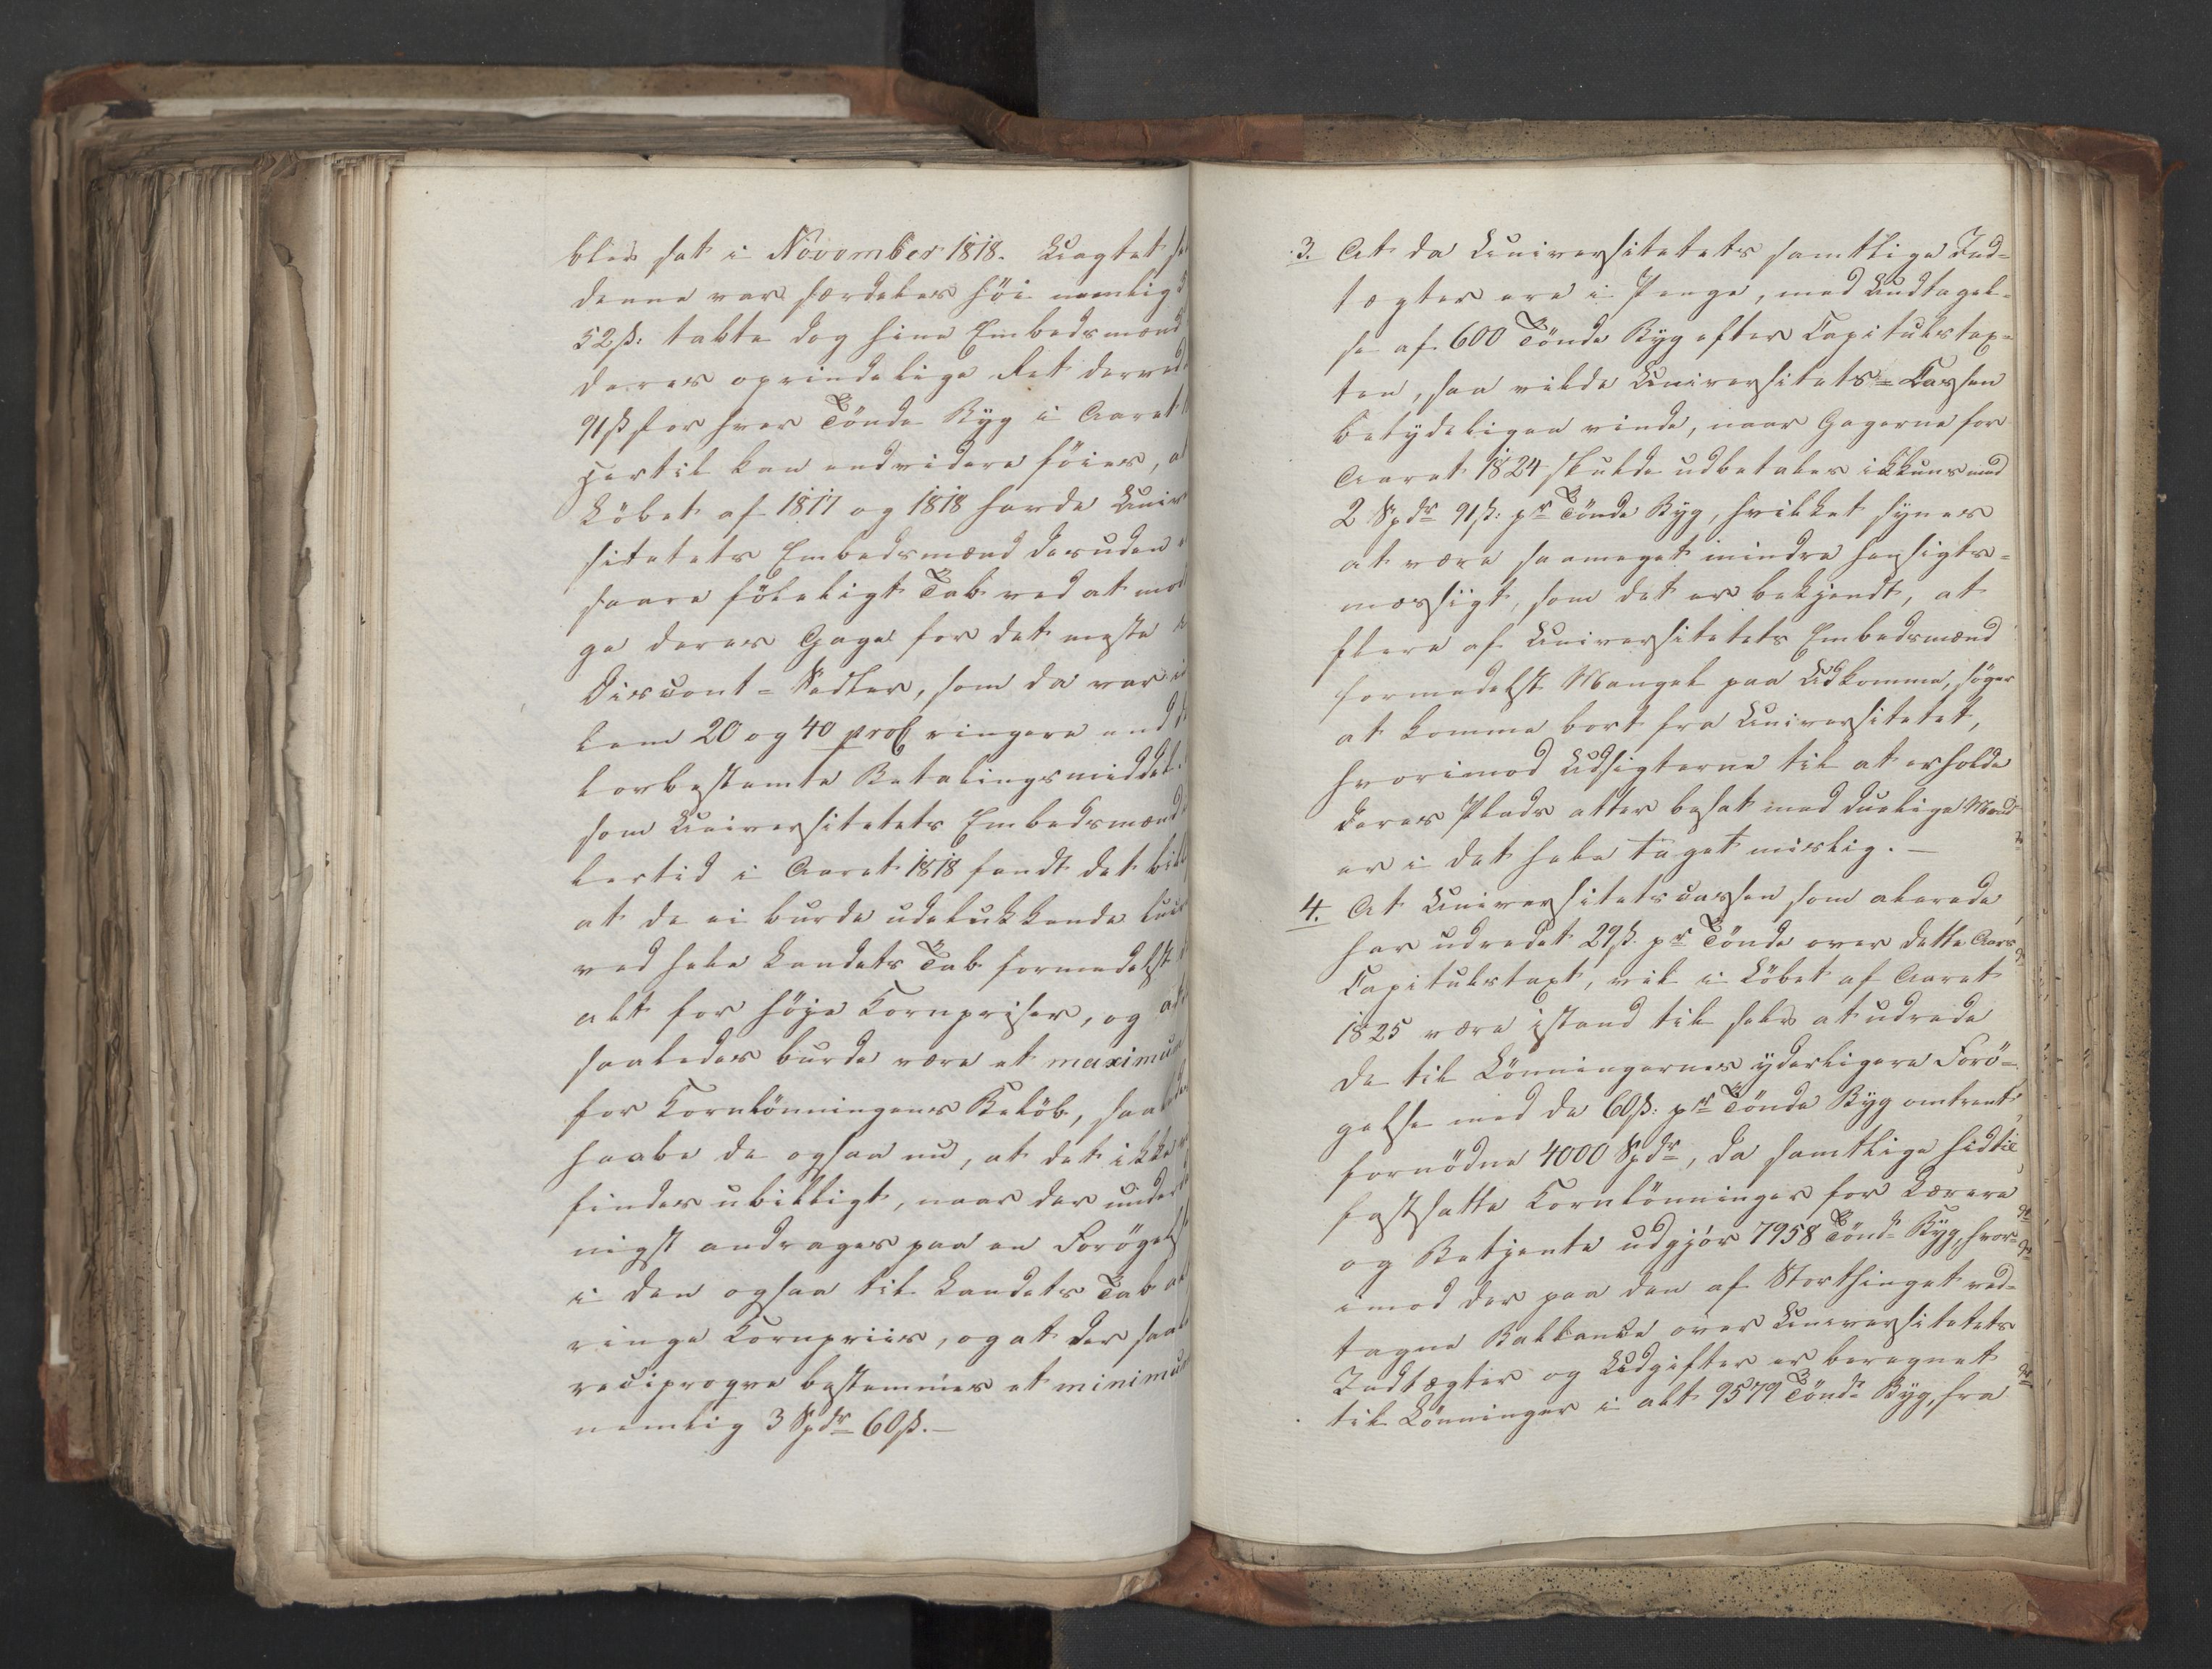 blev sat i November 1818. Uagtet
denne var særdeles höi nemlig
52 ß: tabte dog hine Embedsmænd
deres oprindelige Ret derved
91 ß for hver Tönde Byg i Aaret
Hertil kan endvidere föies, at
Löbet af 1817 og 1818 havde Univ
sitetets Embedsmænd desuden
saare föleligt Tab ved at mod
ge deres Gage for det meste
Discont=Sedler, som da var
lem 20 og 40 proC ringere end
lovbestemte Betalingsmiddel.
som Universitetets Embedsmænd
lertid i Aaret 1818 fandt det bill
at de ei burde udelukkende
ved hele Landets Tab formedelst
alt for höye Kornpriser, og at
saaledes burde være et maximum
for Kornlönningens Belöb, saaledes
haabe de ogsaa nu, at det ikke
findes ubilligt, naar der under
nigst andrages paa en Forögelse
i den ogsaa til Landets Tab alt
ringe Kornpriis, og at der saal
reciproqve bestemmes et minimum
nemlig 3 Spdr 60 ß. —
3. At da Universitetets samtlige Ind=
tægter ere i Penge, med Undtagel=
se af 600 Tönde Byg efter Capitulstax=
ten, saa vilde Universitets=Cassen
betydeligen vinde, naar Gagerne for
Aaret 1824 skulde udbetales ikkuns med
2 Spdr 91 ß: pr Tönde Byg, hvilket synes
at være saameget mindre hensigts=
mæssigt, som det er bekjendt, at
flere af Universitetets Embedsmænd
formedelst Mangel paa Udkomme, söger
at komme bort fra Universitetet,
hvorimod Udsigterne til at erholde
deres Plads atter besat med duelige Mænd
er i det hele taget mislig. —
4. At Universitetscassen som allerede
har udredet 29 ß. pr Tönde over dette Aars
Capitulstaxt, vil i Löbet af Aaret
1825 være istand til selv at udrede
de til Lönningernes yderligere Forö=
gelse med de 60 ß: pr Tönde Byg omtrent
fornödne 4000 Spdr, da samtlige hidtil
fastsatte Kornlönninger for Lærere
og Betjente udgjör 7958 Tönd. Byg, hvor=
imod der paa den af Storthinget ved=
tagne Ballance over Universitetets
Indtægter og Udgifter er beregnet
til Lönninger i alt 9579 Tönd. Byg, fra